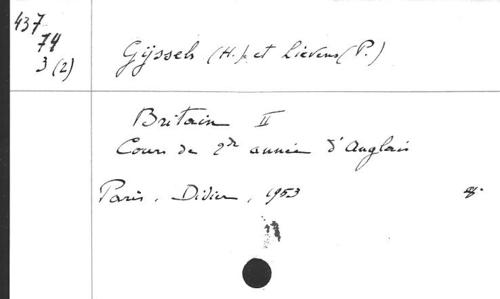 437
74
3 (2)
Gijssels (H.) et Lievens (P.)
Britain II
Cours de 2de année d'Anglais
Paris, Didier, 1953